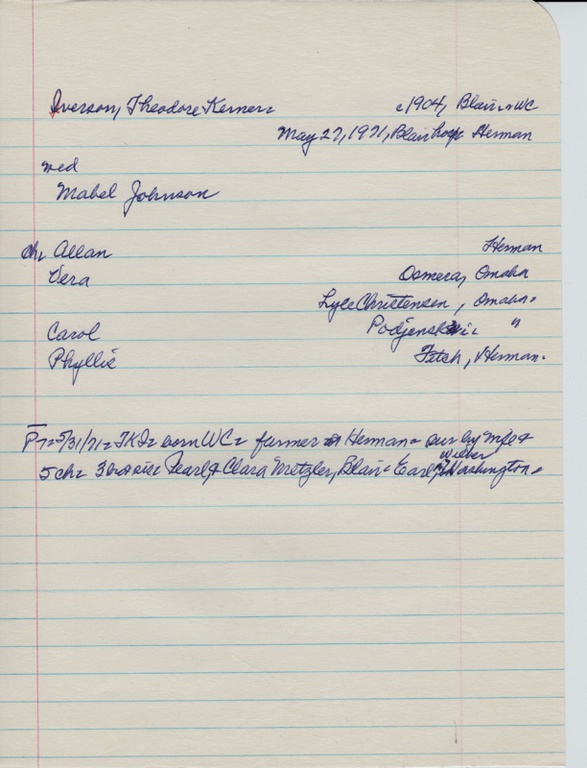 Iverson, Theodore Kerner c1904, Blair, WC
May 27, 1971, Blair hosp Herman
wed
Mabel Johnson
ch: Allan Herman
Vera Osmera, Omaha
Lyle Christensen, Omaha
Carol "
Phyllis Fetch, Herman.
P 7= 5/31/71= TKI= born WC= farmer Herman= sur by wife &
5 ch= 3 Pearl & Clara Metzler, Blair= Earl, Wilber Washington=